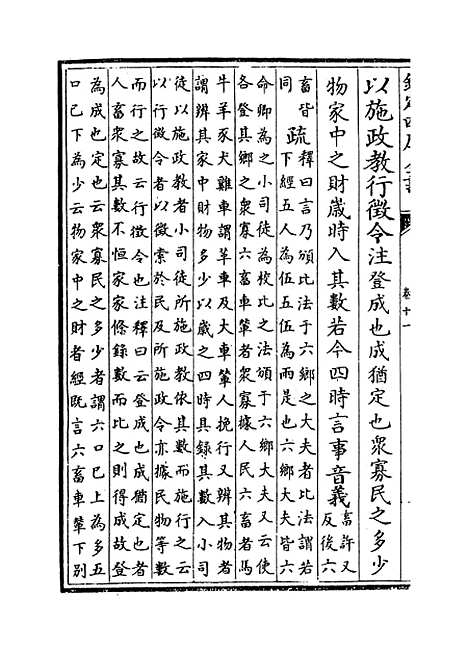 以施政教行徵令注登成也成猶定也衆寡民之多少
物家中之財歲時入其數若今四時言事音義畜許又反後六
畜皆同疏釋曰言乃頒比法于六鄉之大夫者比法謂若下經五人為伍五伍為兩是也六鄉大夫皆六
命卿為之小司徒為校比之法頒于六鄉大夫又云使
各登其鄉之衆寡六畜車輦者衆寡據人民六畜者馬
牛羊豕犬雞車謂革車及大車輦人挽行又辨其物者
謂辨其家中財物多少以歲之四時具録其數入小司
徒以施政教者小司徒所施政教依其數而施行之云
以行徵令者以徵索於民及所施政令亦據民物等數
而行之故云行徵令也注釋曰云登成也成猶定也者
人畜衆寡其數不恒家家條録數而比之則得成故登
為成也定也云衆寡民之多少者謂六口已上為多五
口已下為少云物家中之財者經既言六畜車輦下别
卷十一